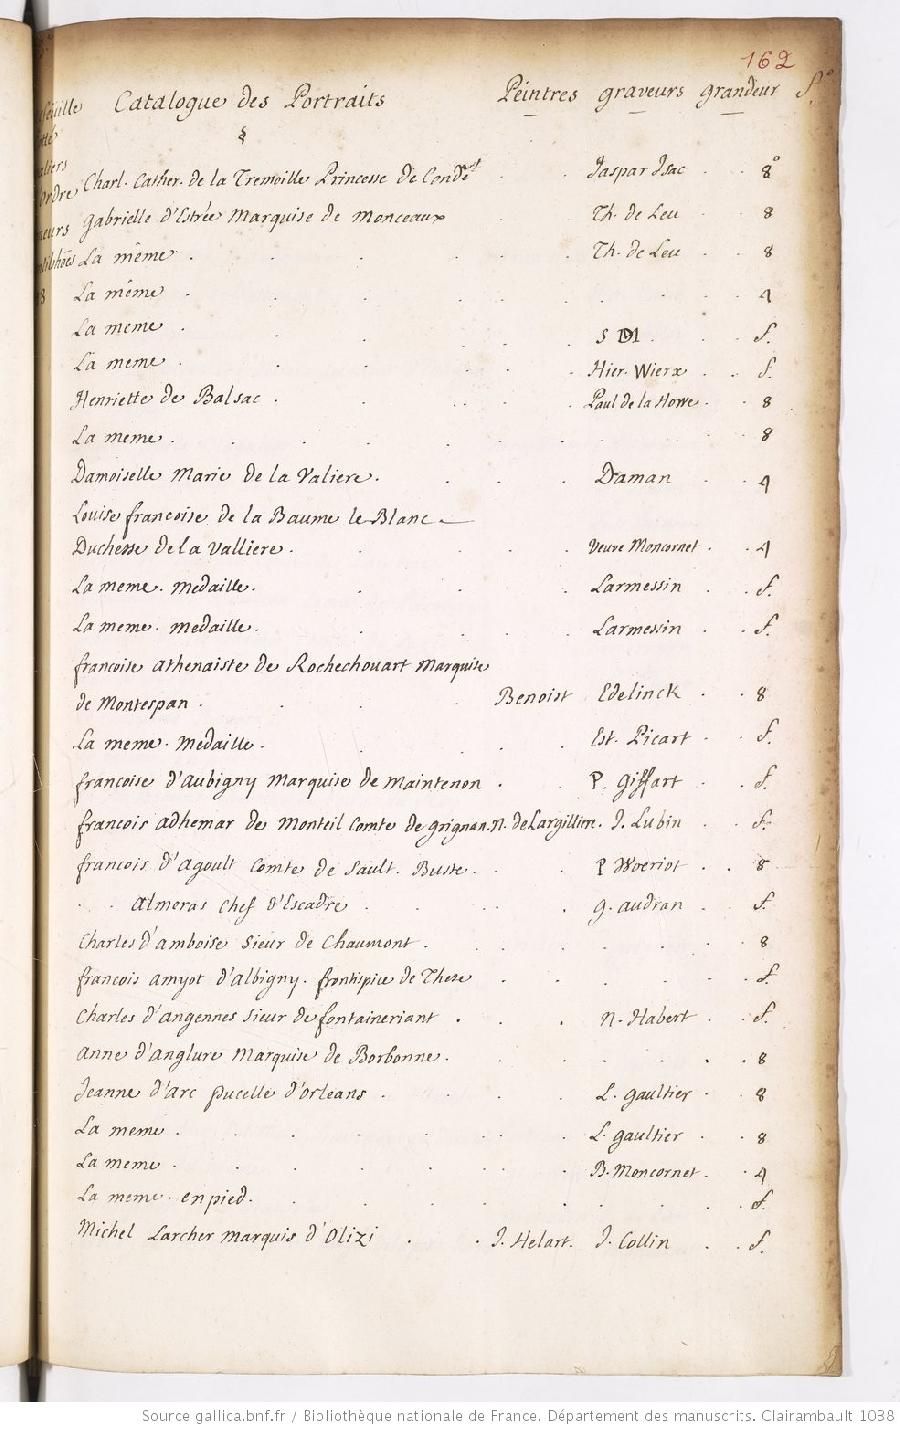 162
Catalogue des Portraits Peintres graveurs grandeur f.º
§
Charl. Cather. de la Tremoille Princesse de Condé Jaspar Isac 8º
Gabrielle d'Estrée Marquise de Monceaux Th. de Leu 8
La même Th. de Leu 8
La même 4
La meme S f.
La meme Hier. Wierx f.
Henriette de Balsac Paul de la Houve 8
La meme 8
Damoiselle Marie de la Valiere. Daman 4
Louise francoise de la Baume le Blanc
Duchesse de la Valliere. Veuve Moncornet 4
La meme. medaille. Larmessin f.
La meme. medaille. Larmessin f.
francoise athenaiste de Rochechouart Marquise
de Montespan Benoist Edelinck 8
La meme. Medaille. Est. Picart f.
francoise d'Aubigny Marquise de Maintenon P. Giffart f.
francois adhemar de Monteil Comte de grignan. N. de Largillirre. J. Lubin f.
francois d'Agoult Comte de Sault. Buste P Woeriot 8
Almeras Chef d'Escadre G. audran f.
Charles d'amboise Sieur de Chaumont. 8
francois amyot d'albigny. frontispice de These f.
Charles d'angennes Sieur de fontaineriant N. Habert f.
anne d'Anglure Marquise de Borbonne. 8
Jeanne d'arc pucelle d'orleans L. gaultier 8
La meme L. gaultier 8
La meme B. Moncornet 4
La meme en pied. f.
Michel Larcher marquis d'Olizi J. Helart. J. Collin f.
Source gallica.bnf.fr / Bibliothèque nationale de France. Département des manuscrits. Clairambault 1038